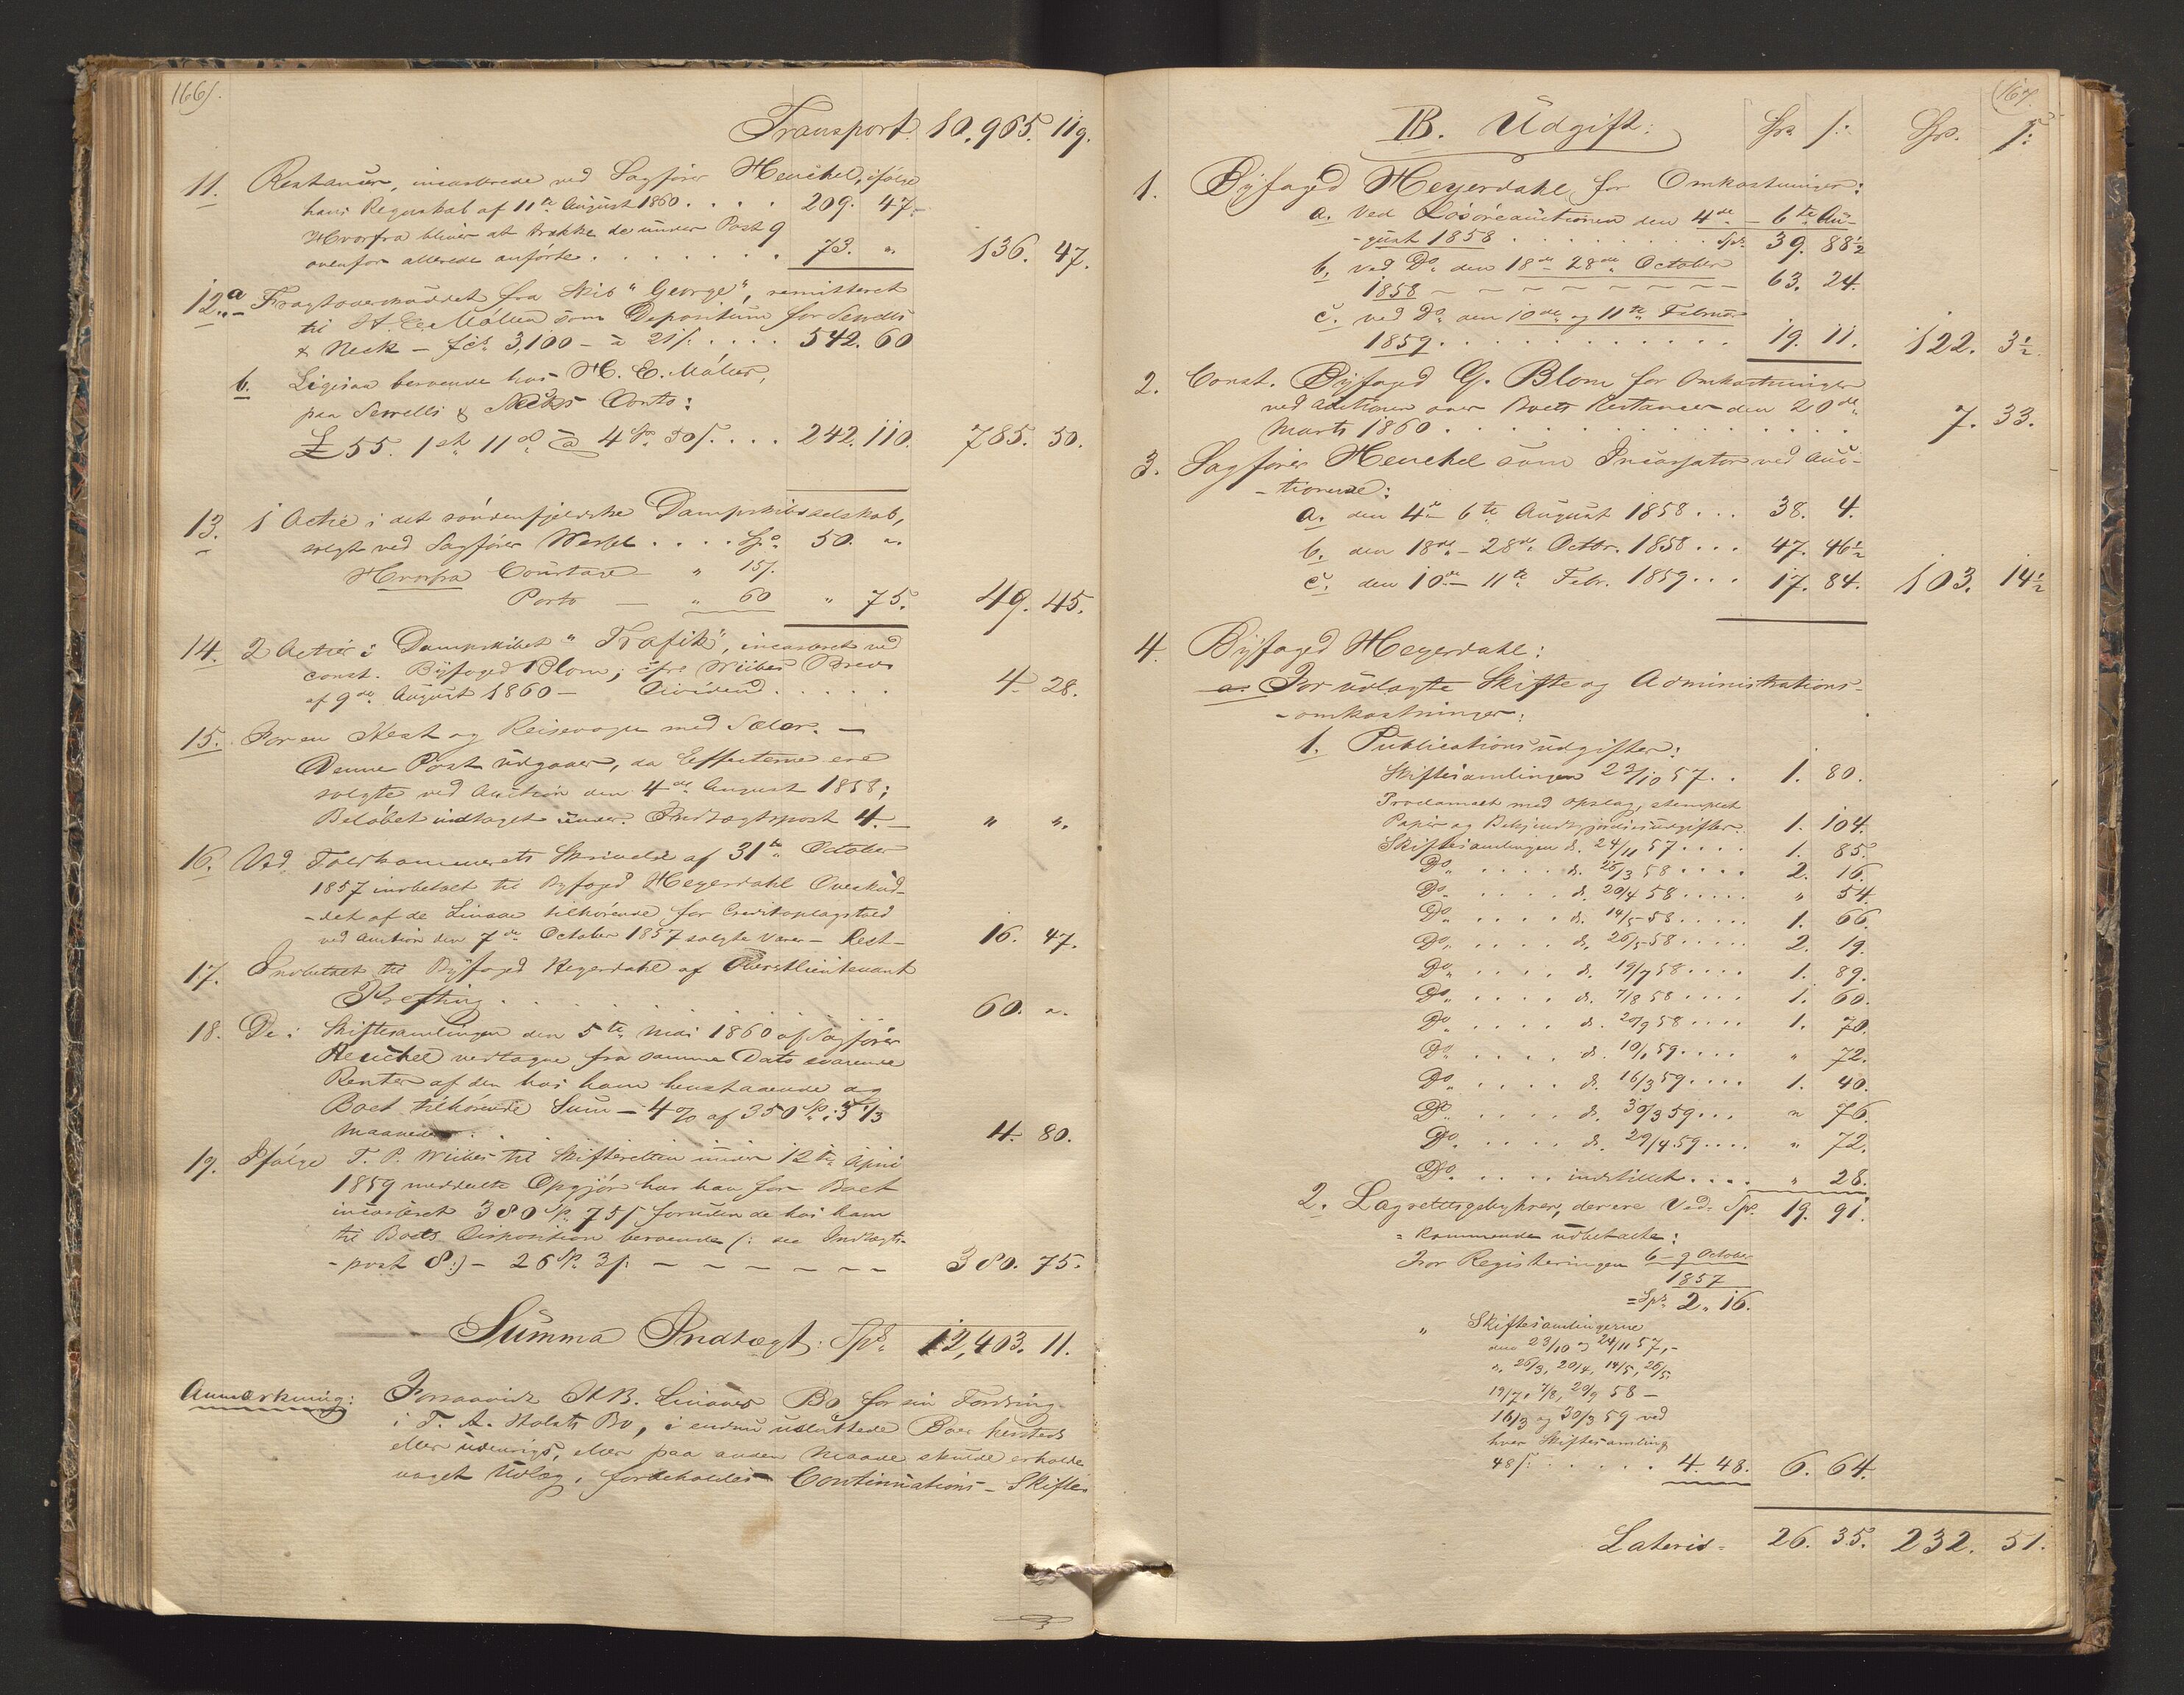 166.
Transport 10,965. 119.
11. Restancer, incasserede ved Sagfører Heuchel, ifølge
hans Regnskab af 11te August 1860 . . . . 209. 47.
Hvorfra bliver at trække de under Post 9
ovenfor allerede anførte . . . . . . . 73. " 136. 47.
12. a Fragtoverskuddet fra Skib "George", remitteret
til H. E. Møller som Depositum for Sewells
& Neck — fcs 3,100 — à 21/. . . . . 542. 60
b. Ligesaa beroende hos H. E. Møller,
paa Sewells & Necks Conto:
£ 55. 1 sh 11 d à 4 Sp. 50/. . . . 242. 110. 785. 50.
13. 1 Actie i det søndenfjeldske Dampskibsselskab,
solgt ved Sagfører Wessel . . . . Sp. 50. "
Hvorfra Courtage — " 15/.
Porto — " 60 " 75. 49. 45.
14. 2 Actier i Dampskibet "Trafik", incasseret ved
const. Byfoged Blom, cfr. Wiibes Brev
af 9de August 1860 — Dividend . . . . . 4. 28.
15. For en Hest og Reisevogn med Sæler. —
Denne Post udgaaer, da Effecterne ere
solgte ved Auction den 4de August 1858;
Beløbet indtaget under Indtægtspost 4. — " "
16. Ved Toldkammerets Skrivelse af 31te October
1857 indbetalt til Byfoged Heyerdahl Overskud-
-det af de Linaae tilhørende, for Creditoplagstold
ved Auction den 7de October 1857 solgte Varer — Rest — 16. 47.
17. Indbetalt til Byfoged Heyerdahl af Oberstlieutenant
Krefting . . . . . . . 60. "
18. De i Skiftesamlingen den 5te Mai 1860 af Sagfører
Heuchel vedtagne fra samme Dato svarende
Renter af den hos ham henstaaende og
Boet tilhørende Sum — 4 % af 350 Sp. i 3 1/3
Maaneder . . . 4. 80.
19. Ifølge T. P. Wiibes til Skifteretten under 12te April
1859 meddeelte Opgjør har han for Boet
incasseret 380 Sp. 75/ foruden de hos ham
til Boets Disposition beroende (: see Indtægts-
-post 8:) — 26 Sp. 3/: — — — — — — 380. 75.
Summa Indtægt: Spd. 12,403. 11.
Anmærkning: Forsaavidt H B. Linaaes Bo for sin Fordring
i T. A. Holsts Bo, i endnu usluttede Boer hersteds
eller udenrigs, eller paa anden Maade skulde erholde
noget Udlæg, forbeholdes Continuations-Skifte.
167.
B. Udgift: Spd. /: Spd. /:
1. Byfoged Heyerdahl, for Omkostninger:
a. Ved Løsøreauctionen den 4de — 6te Au-
-gust 1858 . . . . . . . . . Spd. 39. 88½
b. ved Do. den 18de — 28de October
1858 — — — — — — — — 63. 24.
c. ved Do. den 10de og 11te Februar
1859 . . . . . . . . . . . 19. 11. 122. 3½
2. Const. Byfoged G. Blom for Omkostninger
ved Auctionen over Boets Restancer den 20de
Marts 1860 . . . . . . . . . . . . . . . 7. 33.
3. Sagfører Heuchel som Incassator ved Auc-
-tionerne:
a. den 4de — 6te August 1858 . . . 38. 4.
b. den 18de — 28de Octbr. 1858 . . . 47. 46½
c. den 10de — 11te Febr. 1859 . . . 17. 84. 103. 14½
4. Byfoged Heyerdahl:
a. For udlagte Skifte og Administrations-
-omkostninger:
1. Publicationsudgifter:
Skiftesamlingen 23/10 57 . . 1. 80.
Proclamaet med Opslag, stemplet
Papir og Bekjendtgjørelsesudgifter. 1. 104.
Skiftesamlingen d. 24/11 57 . . . . 1. 85.
Do. . . . . d. 26/3 58 . . . . 2. 16.
Do. . . . . d. 20/4 58 . . . . . " 54.
Do. . . . . d. 14/5 58 . . . . . 1. 66.
Do. . . . . d. 26/5 58 . . . . . 2. 19.
Do. . . . . d. 19/7 58 . . . . 1. 89.
Do. . . . . d. 7/8 58 . . . . 1. 60.
Do. . . . . d. 20/9 58 . . . . 1. 70.
Do. . . . . d. 10/1 59 . . . . " 72.
Do. . . . . d. 16/3 59 . . . . 1. 40.
Do. . . . . d. 30/3 59 . . . " 76.
Do. . . . . d. 29/4 59 . . . . " 72.
Do. . . . . indstillet . . . . " 28.
2. Lagrettesgebyhrer, der ere Ved- Sp. 19. 91.
= kommende udbetalte:
For Registeringen 6 — 9 October
1857
= Spd. 2. 16.
" Skiftesamlingerne
den 23/10 og 24/11 57, —
". 26/3, 20/4, 14/5, 26/5,
19/7, 7/8, 20/9 58 —
16/3 og 30/3 59 ved
hver Skiftesamling
48/: . . . . . 4. 48. 6. 64.
Lateris = 26. 35. 232. 51.